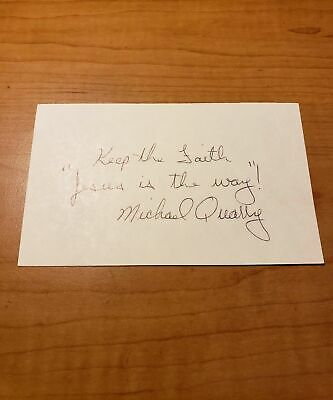 Keep the Faith
"Jesus is the way"!
Michael Quarry